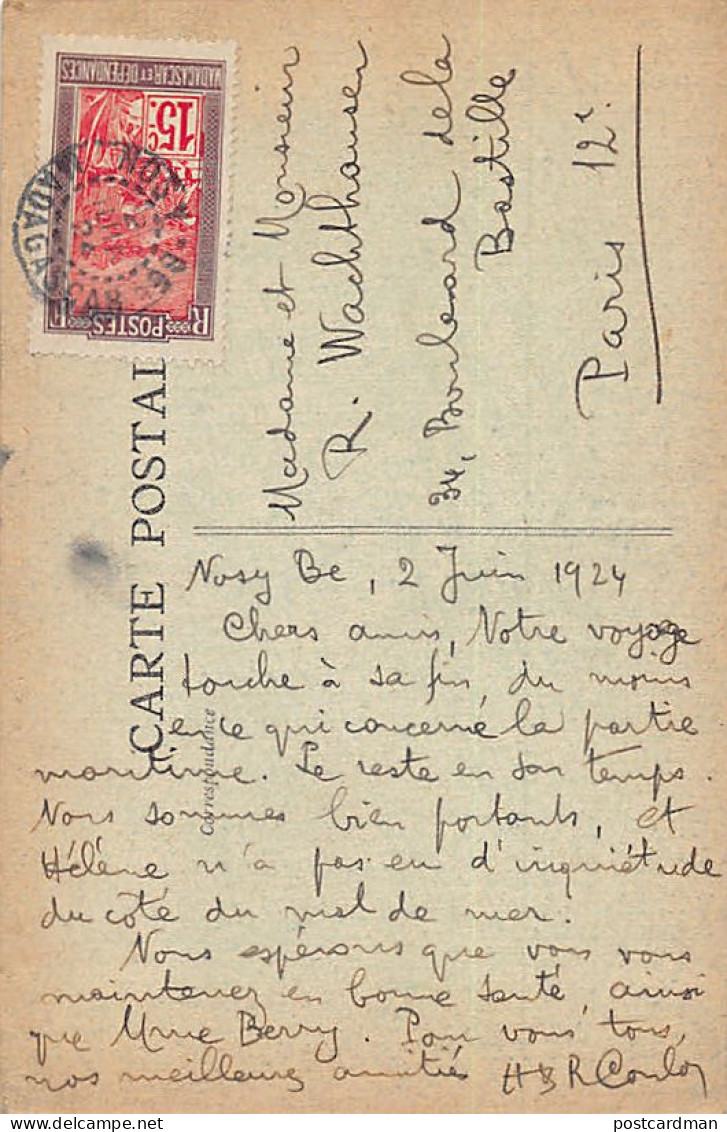 MADAGASCAR ET DÉPENDANCES
15 c.
POSTES
RF
MADAGASCAR
CARTE POSTAL
Correspondance
Madame et Monsieur
R. Wachthausen
34, Boulevard de la
Bastille
Paris 12e
Nosy Be, 2 Juin 1924
Chers amis, Notre voyage
touche à sa fin, du moins
en ce qui concerne la partie
maritime. Le reste en son temps.
Nous sommes bien portants, et
Hélène n'a pas eu d'inquiétude
du côté du mal de mer.
Nous espérons que vous vous
maintenez en bonne santé, ainsi
que Mme Berry. Pour vous tous,
nos meilleures amitiés H & R
postcardman